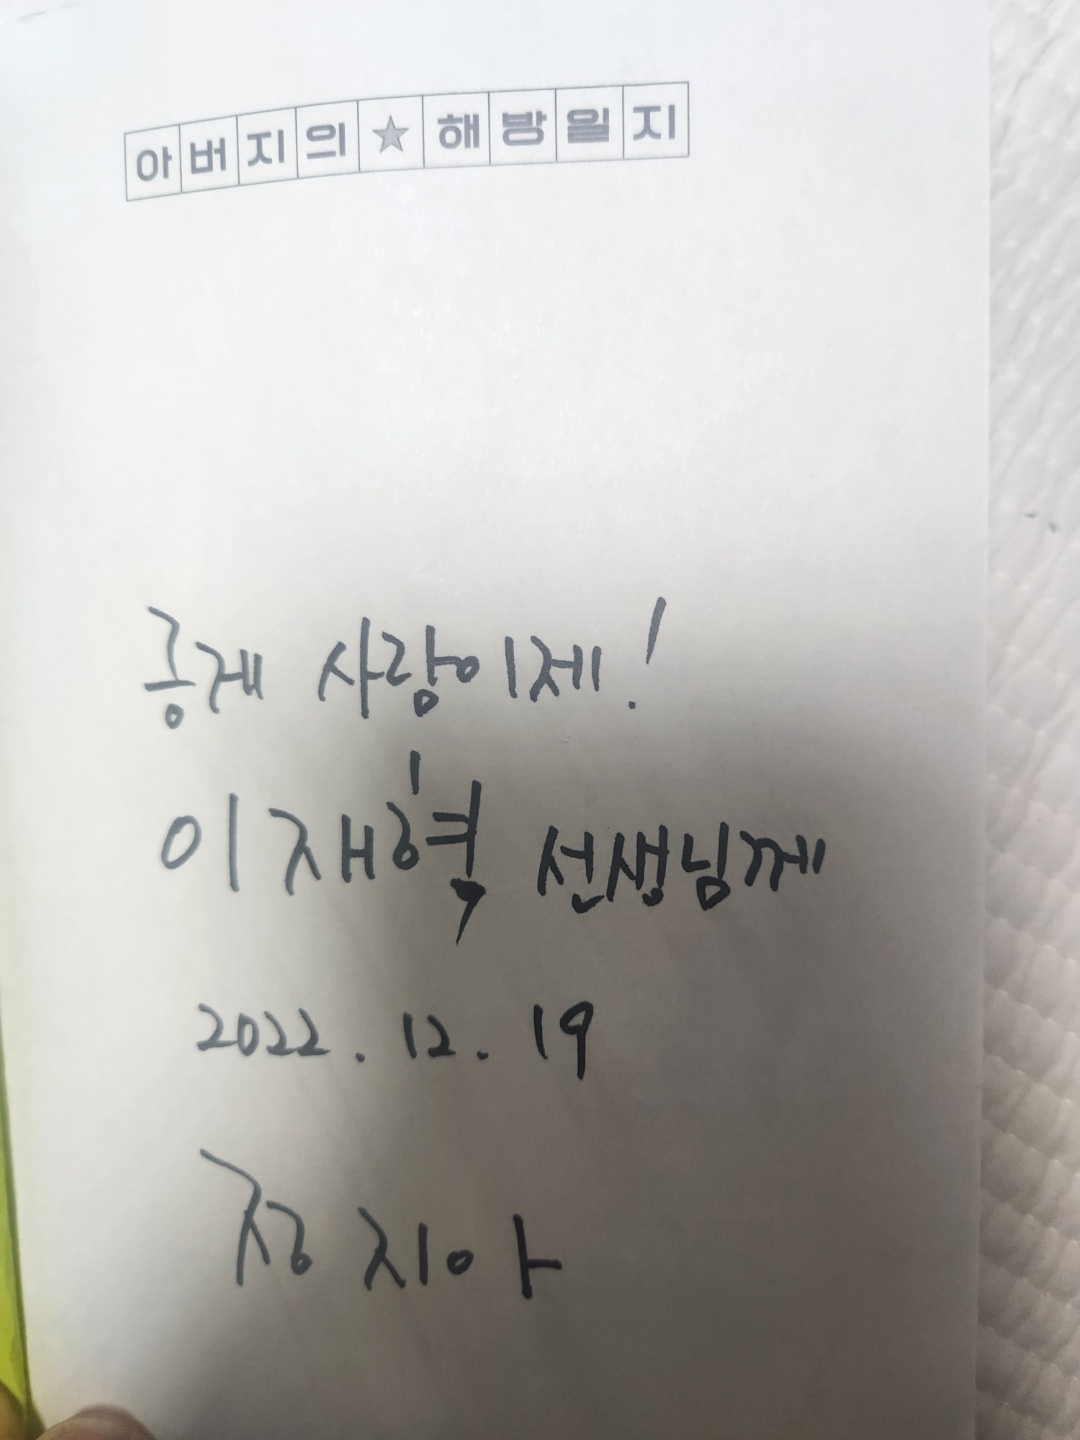 아버지의★해방일지
긍게 사람이제!
이재혁 선생님께
2022. 12. 19
정지아